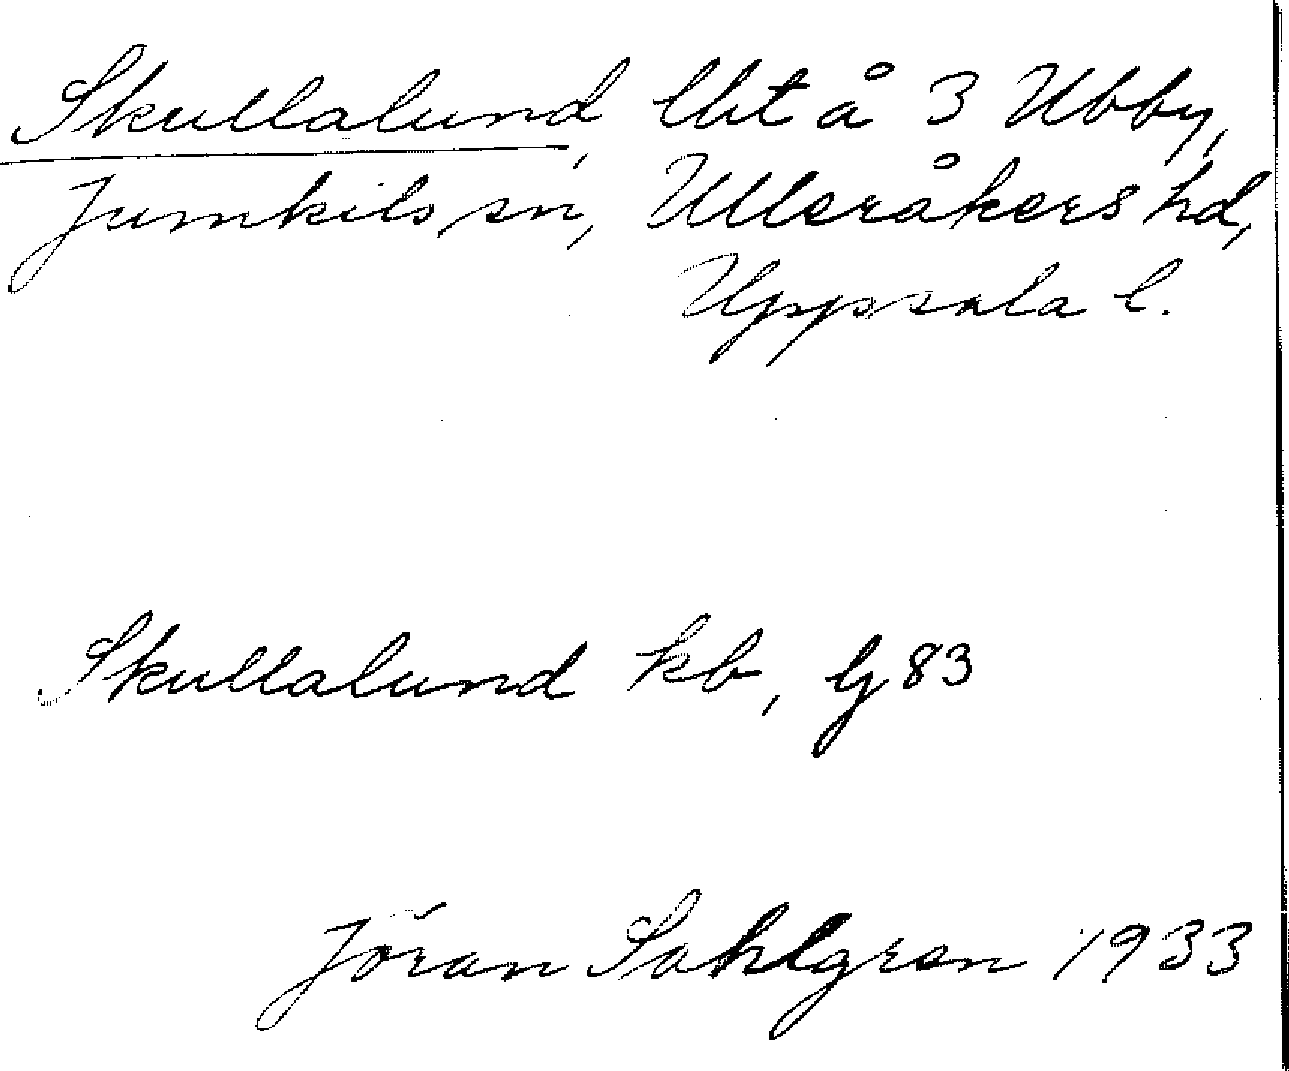 Skullalund, lht å 3 Ubby,
Jumkils sn, Ulleråkers hd,
Uppsala l.
Skullalund kb, lj 83
Jöran Sahlgren 1933